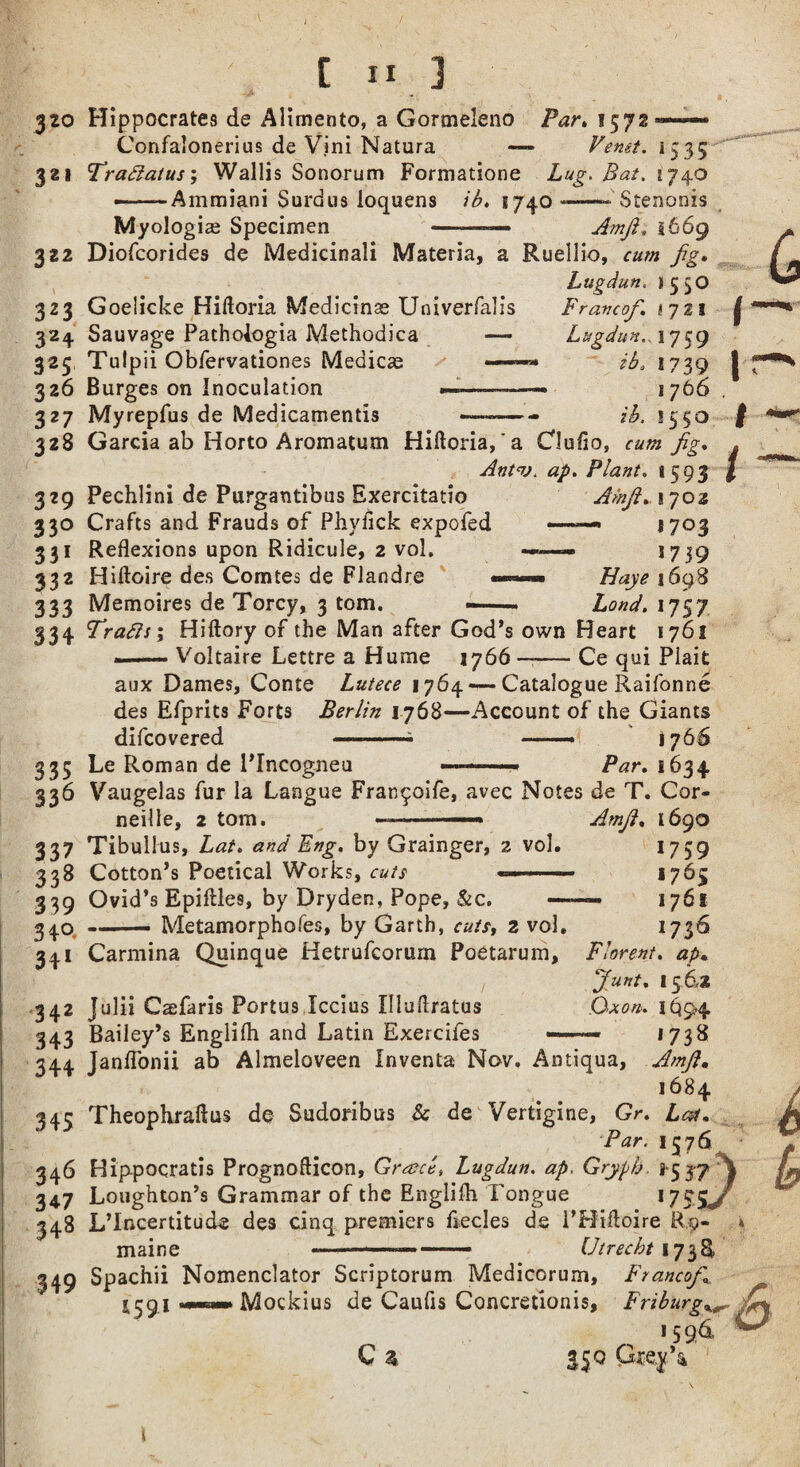 [ 11 ]
320 Hippocrates de Alimento, a Gormeleno Par. 1572 ——
Confalonerius de Vini Natura — Venet. 1535
321 Tractatus; Wallis Sonorum Formatione Lug. Bat. 1740
—— Ammiani Surdus loquens ib. 1740 —— Stenonis
Myologiæ Specimen —— Amst. 1669
322 Dioscorides de Medicinali Materia, a Ruellio, cum fig.
Lugdun. 1550
323 Goelicke Historia Medicinæ Universalis Francof. 1721
324 Sauvage Pathologia Methodica — Lugdun. 1759
325 Tulpii Observationes Medicæ —— ib. 1739
326 Burges on Inoculation —— 1766
327 Myrepsus de Medicamentis —— ib. 1550
328 Garcia ab Horto Aromatum Historia, a Clusio, cum fig.
Antv. ap. Plant. 1593
329 Pechlini de Purgantibus Exercitatio Amst. 1702
330 Crafts and Frauds of Physick exposed —— 1703
331 Reflexions upon Ridicule, 2 vol. —— 1739
332 Histoire des Comtes de Flandre —— Haye 1698
333 Memoires de Torcy, 3 tom. —— Lond. 1757
334 Tracts; History of the Man after God's own Heart 1761
—— Voltaire Lettre a Hume 1766 —— Ce qui Plait
aux Dames, Conte Lutece 1764 — Catalogue Raisonné
des Esprits Forts Berlin 1768—Account of the Giants
discovered —— —— 1766
335 Le Roman de l'Incogneu —— Par. 1634
336 Vaugelas sur la Langue Françoise, avec Notes de T. Cor-
neille, 2 tom. —— Amst. 1690
337 Tibullus, Lat. and Eng. by Grainger, 2 vol. 1759
338 Cotton's Poetical Works, cuts —— 1765
339 Ovid's Epistles, by Dryden, Pope, &c. —— 1761
340 —— Metamorphoses, by Garth, cuts, 2 vol. 1736
341 Carmina Quinque Hetruscorum Poetarum, Florent. ap.
Junt. 1562
342 Julii Cæsaris Portus Iccius Illustratus Oxon. 1694
343 Bailey's English and Latin Exercises —— 1738
344 Janssonii ab Almeloveen Inventa Nov. Antiqua, Amst.
1684
345 Theophrastus de Sudoribus & de Vertigine, Gr. Lat.
Par. 1576
346 Hippocratis Prognosticon, Græcè, Lugdun. ap. Gryph. 1537
347 Loughton's Grammar of the English Tongue 1755
348 L'Incertitude des cinq premiers siecles de l'Histoire Ro-
maine —— Utrecht 1738
349 Spachii Nomenclator Scriptorum Medicorum, Francof.
1591 —— Mockius de Causis Concretionis, Friburg.
1596
C 2 350 Grey's